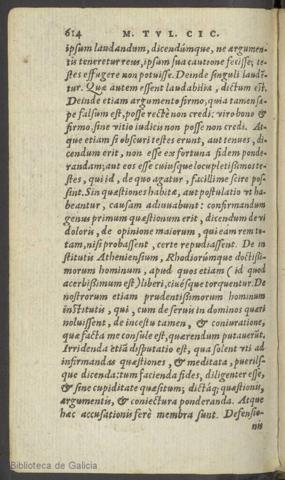 614 M. TVL. CIC.
ipsum laudandum, dicendúmque, ne argumen-
tis teneretur reus, ipsum sua cautione fecisse; te-
stes effugere non potuisse. Deinde singuli laudã-
tur. Quæ autem essent laudabilia, dictum est.
Deinde etiam argumento firmo, quia tamen sæ-
pe falsum est, posse rectè non credi: viro bono &
firmo, sine vitio iudicis non posse non credi. At-
que etiam si obscuri testes erunt, aut tenues, di-
cendum erit, non esse ex fortuna fidem ponde-
randam; aut eos esse cuiusque locupletissimos te-
stes, qui id, de quo agatur, facillime scire pos-
sint. Sin quæstiones habitæ, aut postulatio vt ha-
beantur, causam adiuuabunt: confirmandum
genus primum quæstionum erit, dicendum de vi
doloris, de opinione maiorum, qui eam rem to-
tam, nisi probassent, certe repudiassent. De in
stitutis Atheniensium, Rhodiorúmque doctissi-
morum hominum, apud quos etiam ( id quod
acerbißimum est) liberi, ciuésque torquentur. De
nostrorum etiam prudentissimorum hominum
institutis, qui, cum de seruis in dominos quæri
noluissent, de incestu tamen, & coniuratione,
quæ facta me consule est, quærendum putauerũt.
Irridenda etiã disputatio est, qua solent vti ad
infirmandas quæstiones, & meditata, puerils-
que dicenda: tum facienda fides, diligenter esse,
& sine cupiditate quæsitum; dictáq; quæstionis,
argumentis, & coniectura ponderanda. Atque
hæc accusationis ferè membra sunt. Defensio-
nis
Biblioteca de Galicia